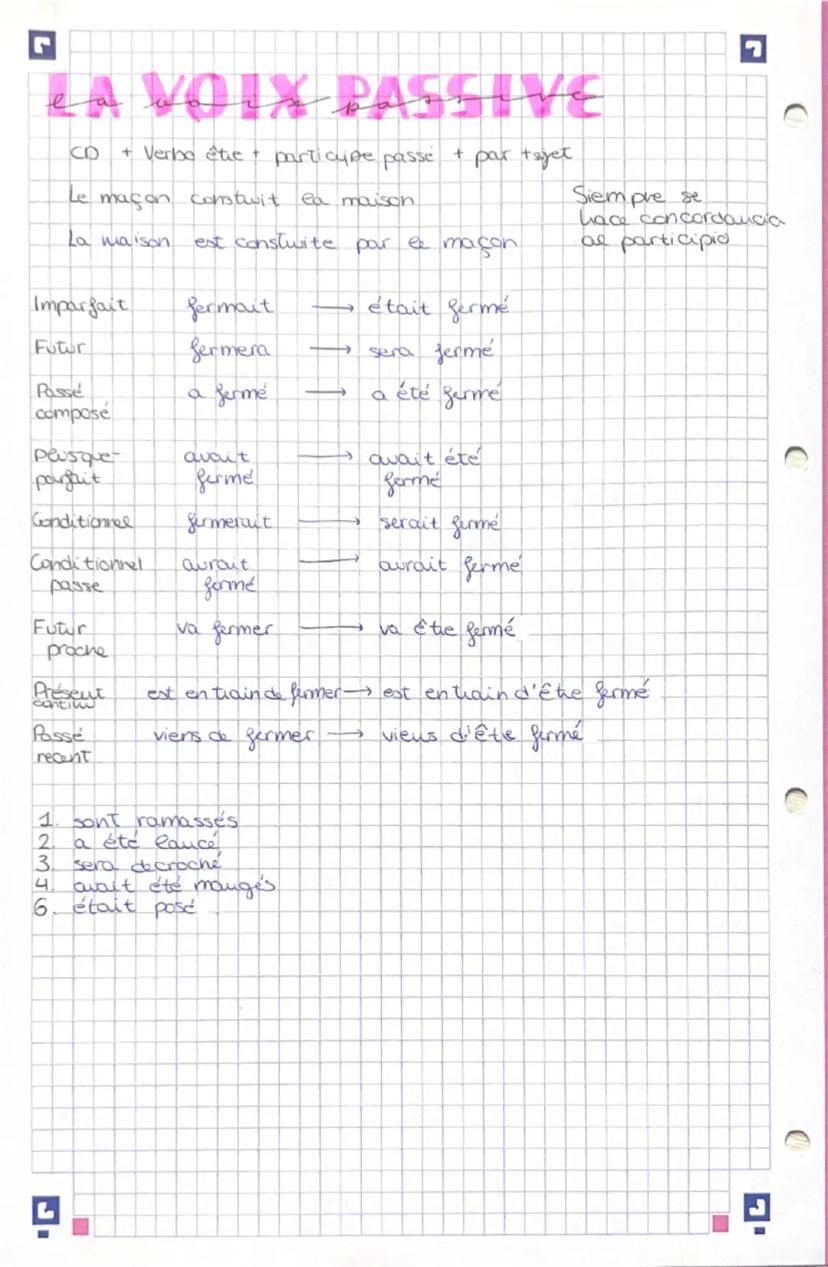 LA VOIX PASSIVE
la voix passive
CD + Verbo être + participe passé + par + sjet
Le maçon construit la maison
La maison est construite par le maçon
Siempre se
hace concordancia
al participio
Imparfait fermait → était fermé
Futur fermera → sera fermé
Passé a fermé → a été fermé
composé
plusque- avait → avait été
parfait fermé fermé
Conditionnel fermerait → serait fermé
Conditionnel aurait → aurait fermé
passe fermé
Futur va fermer → va être fermé
proche
Présent est en train de fermer → est en train d'être fermé
continu
Passé viens de fermer → viens d'être fermé
recent
1. sont ramassés
2. a été lancé
3. sera decroché
4. avait été mangés
6. était posé